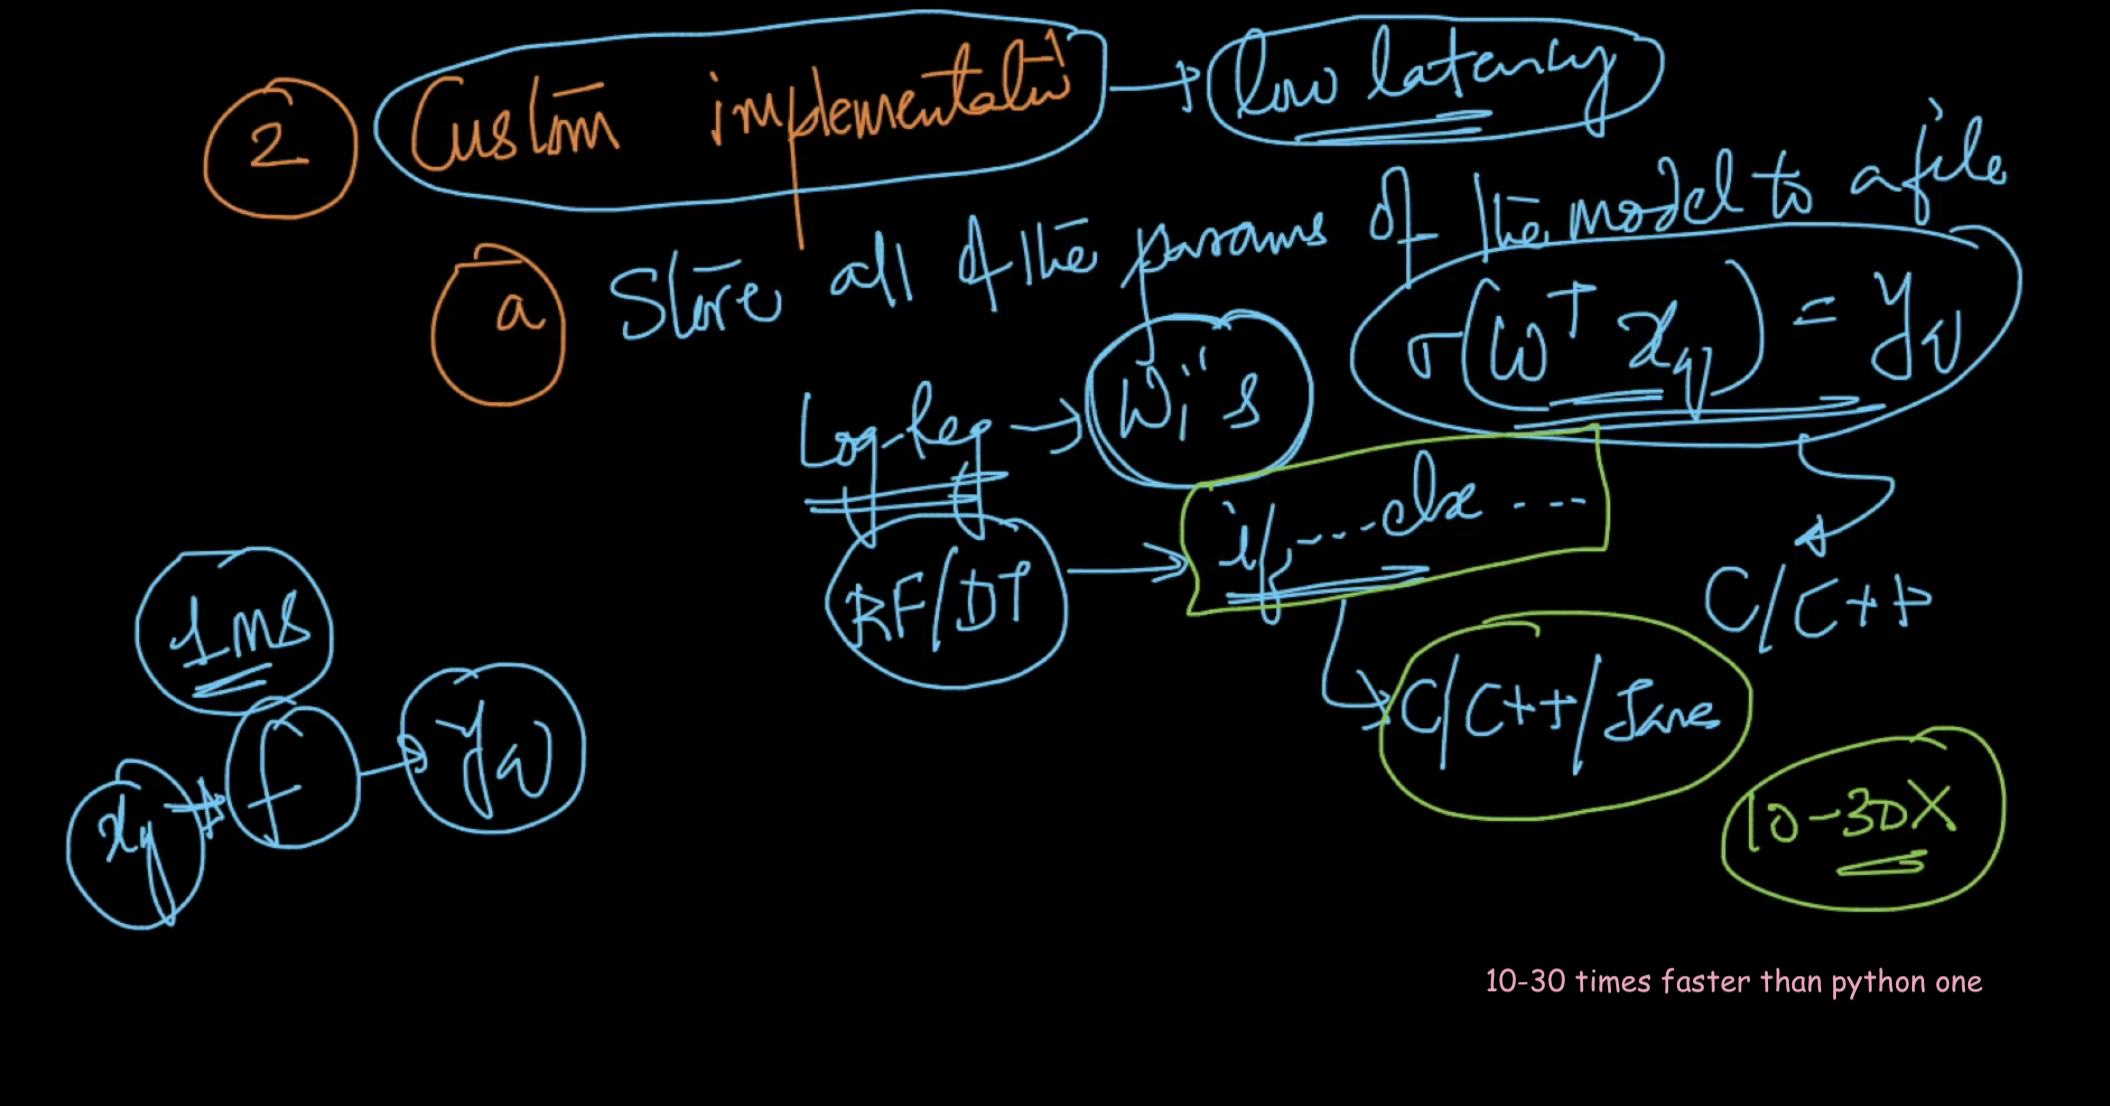 2 Custom implementatn → low latency
a Store all of the params of the model to a file
Log-Reg → Wi's σ(wᵀ xq) = yq
RF/DT → if,...else ...
C/C++
1ms
C/C++/Java
xq → f → yq
10-30X
10-30 times faster than python one